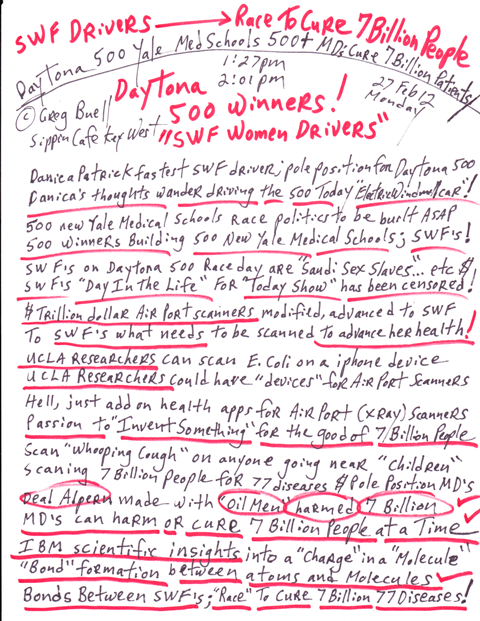 SWF Drivers → Race To Cure 7 Billion People
Daytona 500 Yale Med Schools 500+ MDs Cure 7 Billion Patients
1:27pm
2:01pm
27 Feb 12
Monday
Daytona
500 Winners!
"SWF Women Drivers"
© Greg Buell
Sippin Cafe Key West
Danica Patrick fastest SWF driver; pole position for Daytona 500
Danica's thoughts wander driving the 500 Today "ElectricWindmillcar"!
500 new Yale Medical Schools Race politics to be built ASAP
500 Winners Building 500 New Yale Medical Schools; SWF's!
SWF's on Daytona 500 Race day are "Saudi Sex Slaves"... etc $
SWF's "Day In the Life" For "Today Show" has been censored!
$ Trillion dollar Air Port scanners modified, advanced to SWF
To SWF's what needs to be scanned to advance her health!
UCLA Researchers can scan E. Coli on a iphone device
UCLA Researchers could have "devices" for Air Port Scanners
Hell, just add on health apps for Air Port (xray) Scanners
Passion to "Invent Something" for the good of 7 Billion People
Scan "Whooping Cough" on anyone going near "Children"
Scaning 7 Billion People for 77 diseases $ Pole Position MD's
Deal Alpern made with "Oil Men" harmed 7 Billion
MD's can harm or cure 7 Billion People at a Time
IBM scientific insights into a "Charge" in a "Molecule"
"Bond" formation between atoms and Molecules
Bonds Between SWF's; "Race" To Cure 7 Billion 77 Diseases!